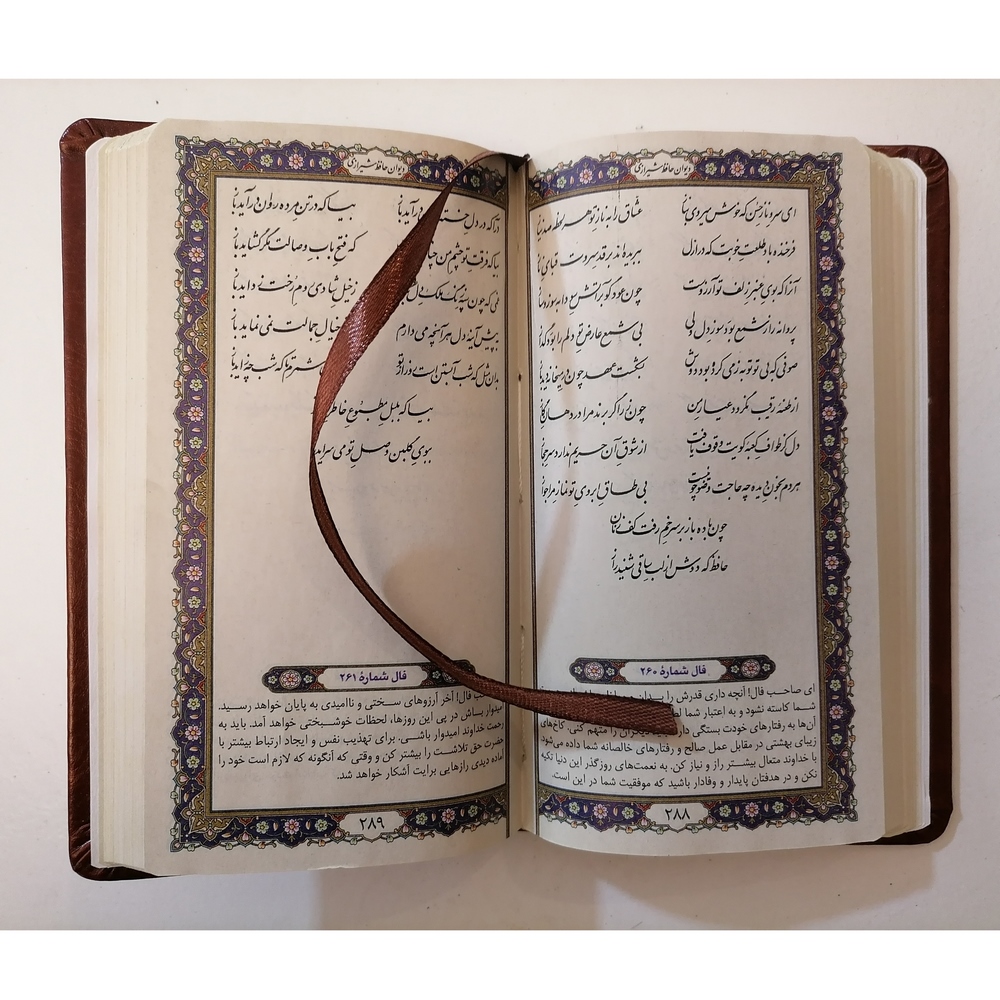 دیوان حافظ شیرازی
ای سرو ناز حسن که خوش میروی بناز عشاق را بناز تو هر لحظه صد نیاز
فرخنده باد طلعت خوبت که در ازل ببریده اند بر قد سروت قبای ناز
آنرا که بوی عنبر زلف تو آرزوست چون عود گو بر آتش سودا بسوز و ساز
پروانه را ز شمع بود سوز دل ولی بی شمع عارض تو دلم را بود گداز
صوفی که بی تو توبه ز می کرده بود دوش بشکست عهد چون در میخانه دید باز
از طعنه رقیب نگردد عیار من چون زر اگر برند مرا در دهان گاز
دل کز طواف کعبه کویت وقوف یافت از شوق آن حریم ندارد سر حجاز
هر دم بخون دیده چه حاجت وضو چو نیست بی طاق ابروی تو نماز مرا جواز
چون باده باز بر سر خم رفت کف زنان
حافظ که دوش از لب ساقی شنید راز
فال شمارهٔ ۲۶۰
ای صاحب فال! آنچه داری قدرش را بدان
شما کاسته نشود و به اعتبار شما
آن‌ها به رفتارهای خودت بستگی دارد دیگران را متهم کنی. کاخ‌های
زیبای بهشتی در مقابل عمل صالح و رفتارهای خالصانه شما داده می‌شود.
با خداوند متعال بیشتر راز و نیاز کن. به نعمت‌های زودگذر این دنیا تکیه
نکن و در هدفتان پایدار و وفادار باشید که موفقیت شما در این است.
۲۸۸
دیوان حافظ شیرازی
درآ که در دل درآید باز بیا که در تن مرده روان درآید باز
بیا که فرقت تو چشم من که فتح باب وصالت مگر گشاید باز
غمی که چون سپه زنگ ملک دل ز خیل شادی روم رخت زداید باز
به پیش آینه دل هر آنچه می دارم خیال جمالت نمی نماید باز
بدان مثل که شب آبستن است روز از تو شمرم تا که شب چه زاید باز
بیا که بلبل مطبوع خاطر
ببوی گلبن وصل تو می سراید
فال شمارهٔ ۲۶۱
فال! آخر آرزوهای سختی و ناامیدی به پایان خواهد رسید.
امیدوار باش در پی این روزها، لحظات خوشبختی خواهد آمد. باید به
رحمت خداوند امیدوار باشی. برای تهذیب نفس و ایجاد ارتباط بیشتر با
حضرت حق تلاشت را بیشتر کن و وقتی که آنگونه که لازم است خود را
آماده دیدی رازهایی برایت آشکار خواهد شد.
۲۸۹